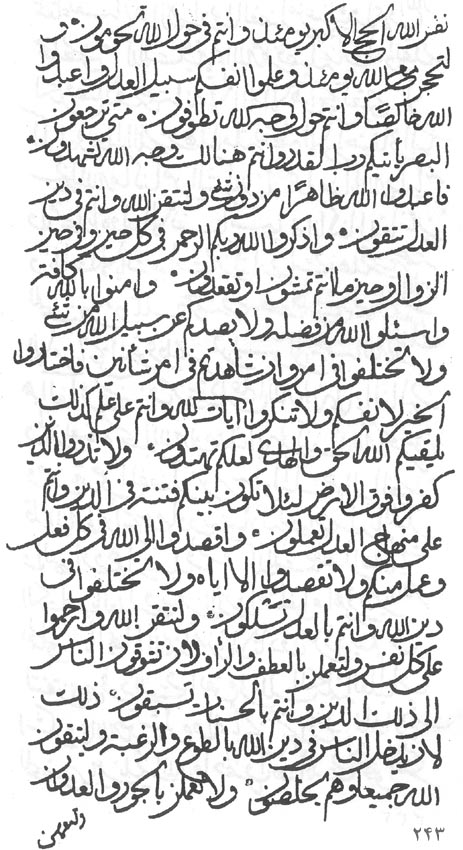 نفس الله الحج الاكبر يومئذ وانتم فى حول الله تحومون و
لتحجن مع الله يومئذ وعلموا انفسكم سبيل العدل واعبدوا
الله خالصًا وانتم حول وجهه لله تطوفون متى ترجعون
البصر بانيكم رب لقدروا انتم هنالك وجه الله تشهدون
فاعبدوا الله ظاهرًا من دون شئ ولتتقن الله وانتم فى دين
العدل تتقون واذكروا الله ربكم الرحمن فى كل حين وفى حين
الزوال وحين ما انتم تمشون او تقعدون وامنوا بالله كافة
واسئلوا الله من فضله ولا يصدكم عن سبيل الله من شئ
ولا تختلفوا فى امر وان شاهدتم فى امر شأنين فاختاروا
الخير لانفسكم ولا تنكروا ايات الله وانتم على علم كذلك
يلقيكم الله الحق والهدى لعلكم تهتدون ولا تذروا الذين
كفروا فوق الارض لئلا تكون بينكم فتنة فى الدين وانتم
على منهاج العدل تعملون واقصدوا الى الله فى كل فعل
وعمل منكم ولا تقصدوا الا اياه ولا تختلفوا فى
دين الله وانتم بالعدل تسلكون ولتتقن الله وارحموا
على كل نفس ولتعملن بالعطف والراف لان تشوقون الناس
الى ذلك الدين وانتم بالحسنات تسبقون ذلك
لان يدخل الناس فى دين الله بالطوع والرغبة وليتقون
الله جميعا وهم يخلصون ولا تعملن بالجور والعدوان
ولتعملن
٢٤٣